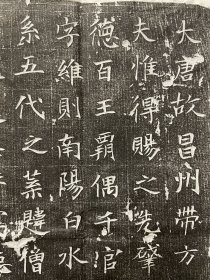 大唐故昌州帶方
夫惟得賜之先肇
德百王霸偶千倌
字維則南陽白水
系五代之僧